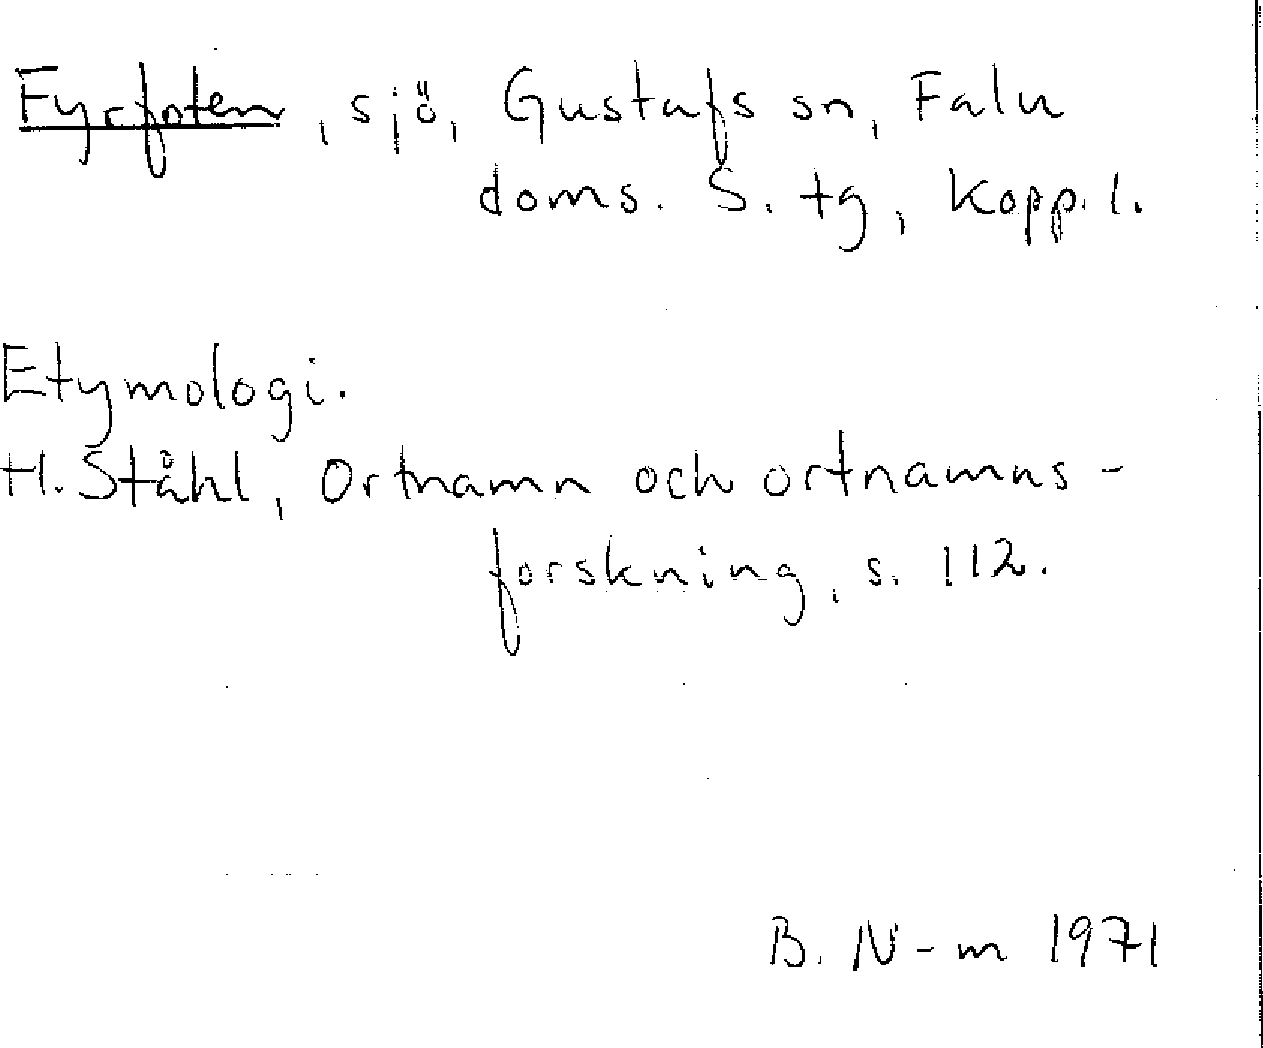 Fyrfoten, sjö, Gustafs sn, Falu
doms. S. tg, Kopp. l.
Etymologi.
H. Ståhl, Ortnamn och ortnamns-
forskning, s. 112.
B. N-m 1971